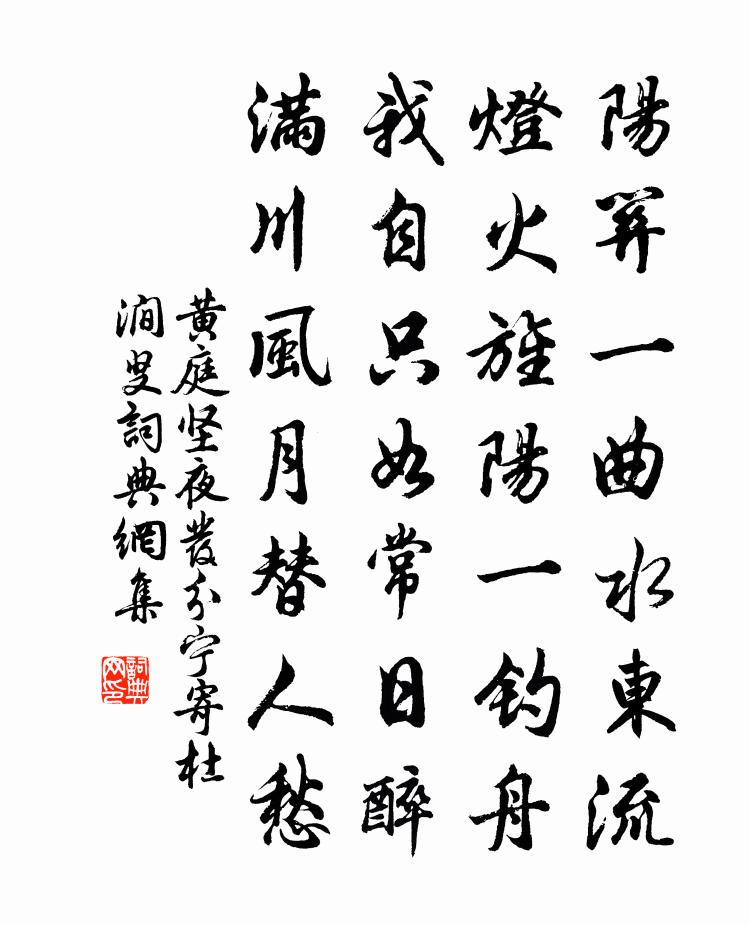 陽關一曲水東流
燈火旌陽一钓舟
我自只如常日醉
滿川風月替人愁
黄庭坚夜發分宁寄杜
澗叟詞典網集
詞典
网印